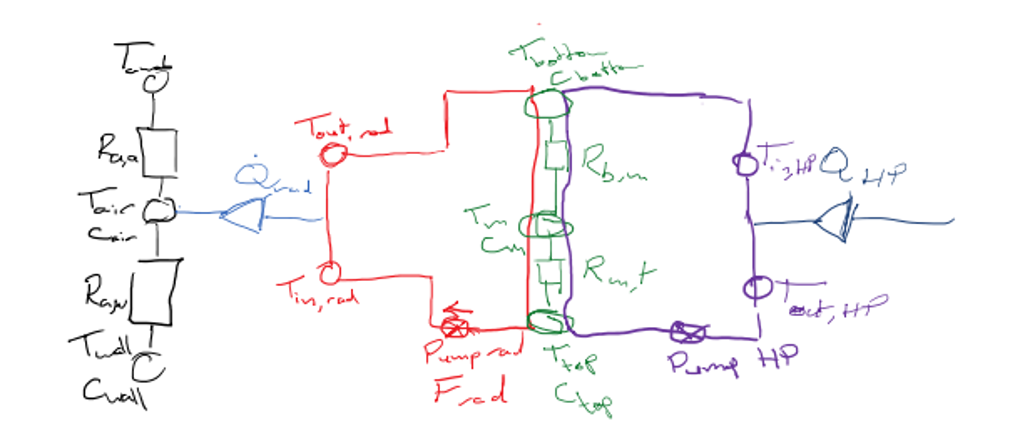 T_amb
R_a,a
T_air
C_air
R_a,w
T_wall
C_wall
Q̇_rad
T_out, rad
T_in, rad
Pump rad
F_rad
T_bottom
C_bottom
R_b,m
T_m
C_m
R_m,t
T_top
C_top
T_in,HP
Q_HP
T_out, HP
Pump HP